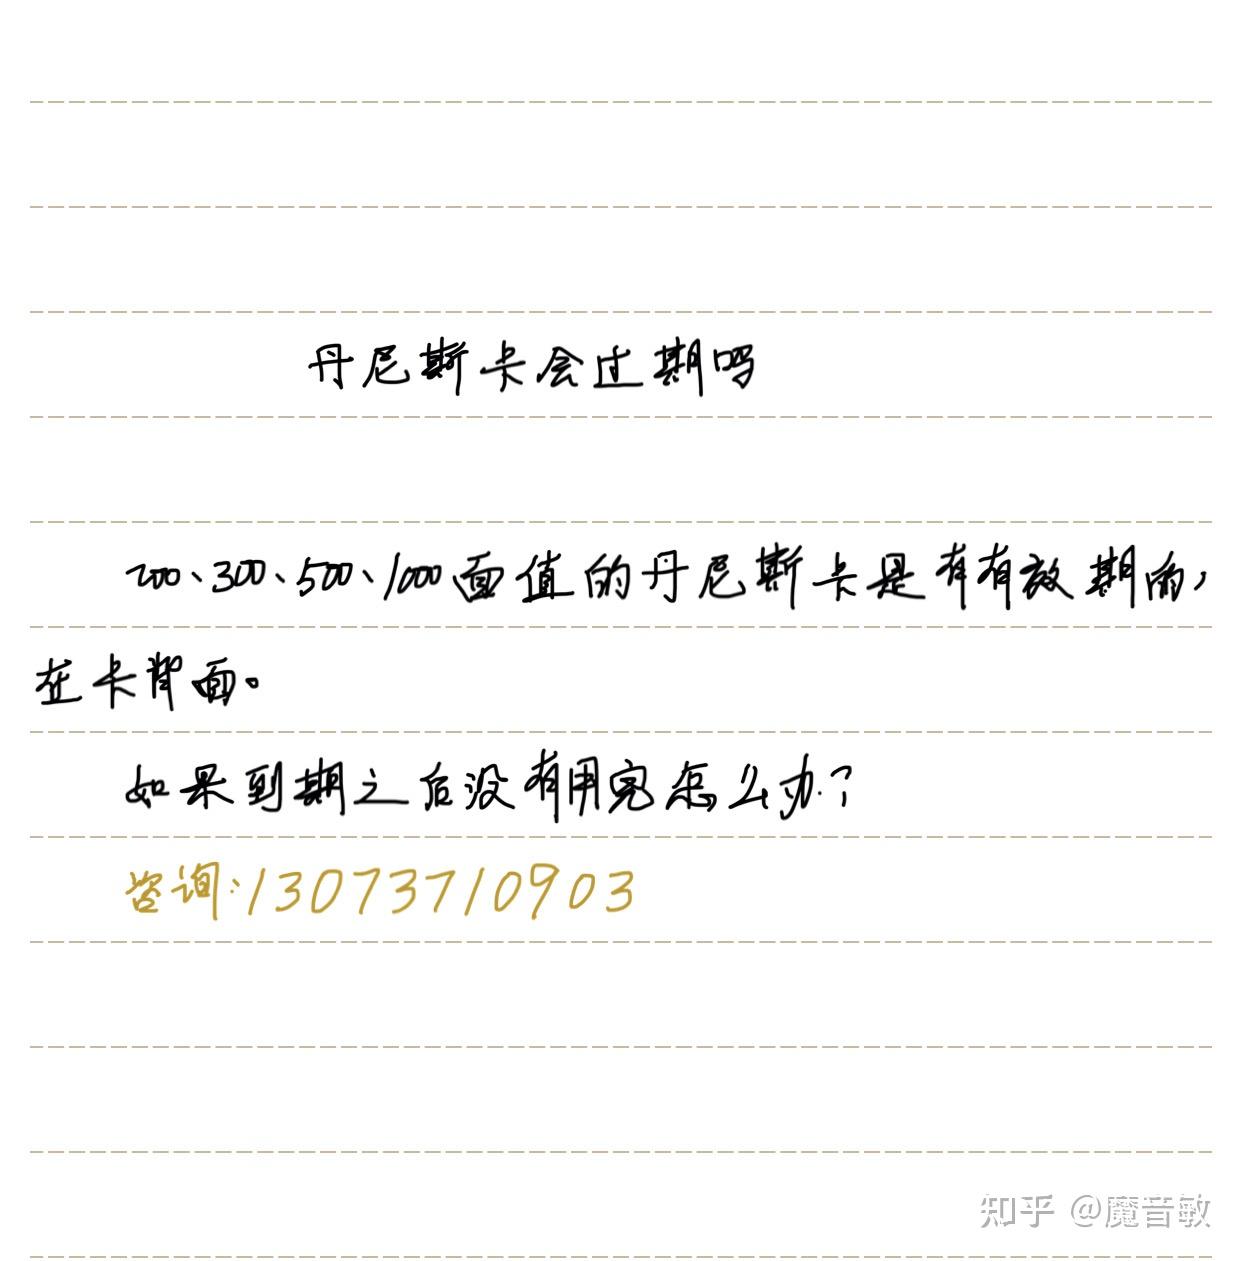 丹尼斯卡会过期吗
200、300、500、1000面值的丹尼斯卡是有有效期的,
在卡背面。
如果到期之后没有用完怎么办?
咨询:13073710903
知乎 @魔音敏